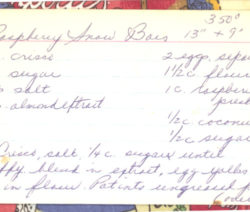 350°
Raspberry Snow Bars 13" x 9"
crisco 2 eggs, sepa
sugar 1 1/2 c. flour
salt 1 c. raspberr
almond extract pres
1/2 c coconu
1/2 c suga
Crisco, salt, 1/4 c. sugar until
ffy blend in extract, egg yolks
in flour. Pat into ungreased